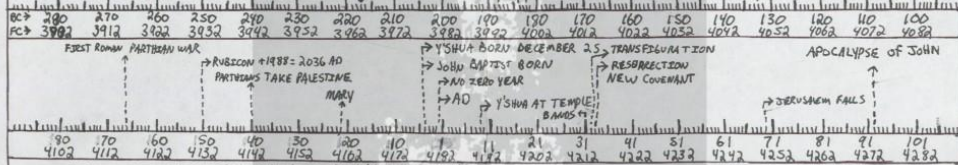 BC→ 280 270 260 250 240 230 220 210 200 190 180 170 160 150 140 130 120 110 100
FC→ 3902 3912 3922 3932 3942 3952 3962 3972 3982 3992 4002 4012 4022 4032 4042 4052 4062 4072 4082
FIRST ROMAN PARTHIAN WAR
RUBICON +1988 = 2036 AD
PARTHIANS TAKE PALESTINE
MARY
Y'SHUA BORN DECEMBER 25
JOHN BAPTIST BORN
NO ZERO YEAR
AD
Y'SHUA AT TEMPLE
BANDS
TRANSFIGURATION
RESURRECTION
NEW COVENANT
JERUSALEM FALLS
APOCALYPSE OF JOHN
80 70 60 50 40 30 20 10 1 11 21 31 41 51 61 71 81 91 101
4102 4112 4122 4132 4142 4152 4162 4172 4182 4192 4202 4212 4222 4232 4242 4252 4262 4272 4282